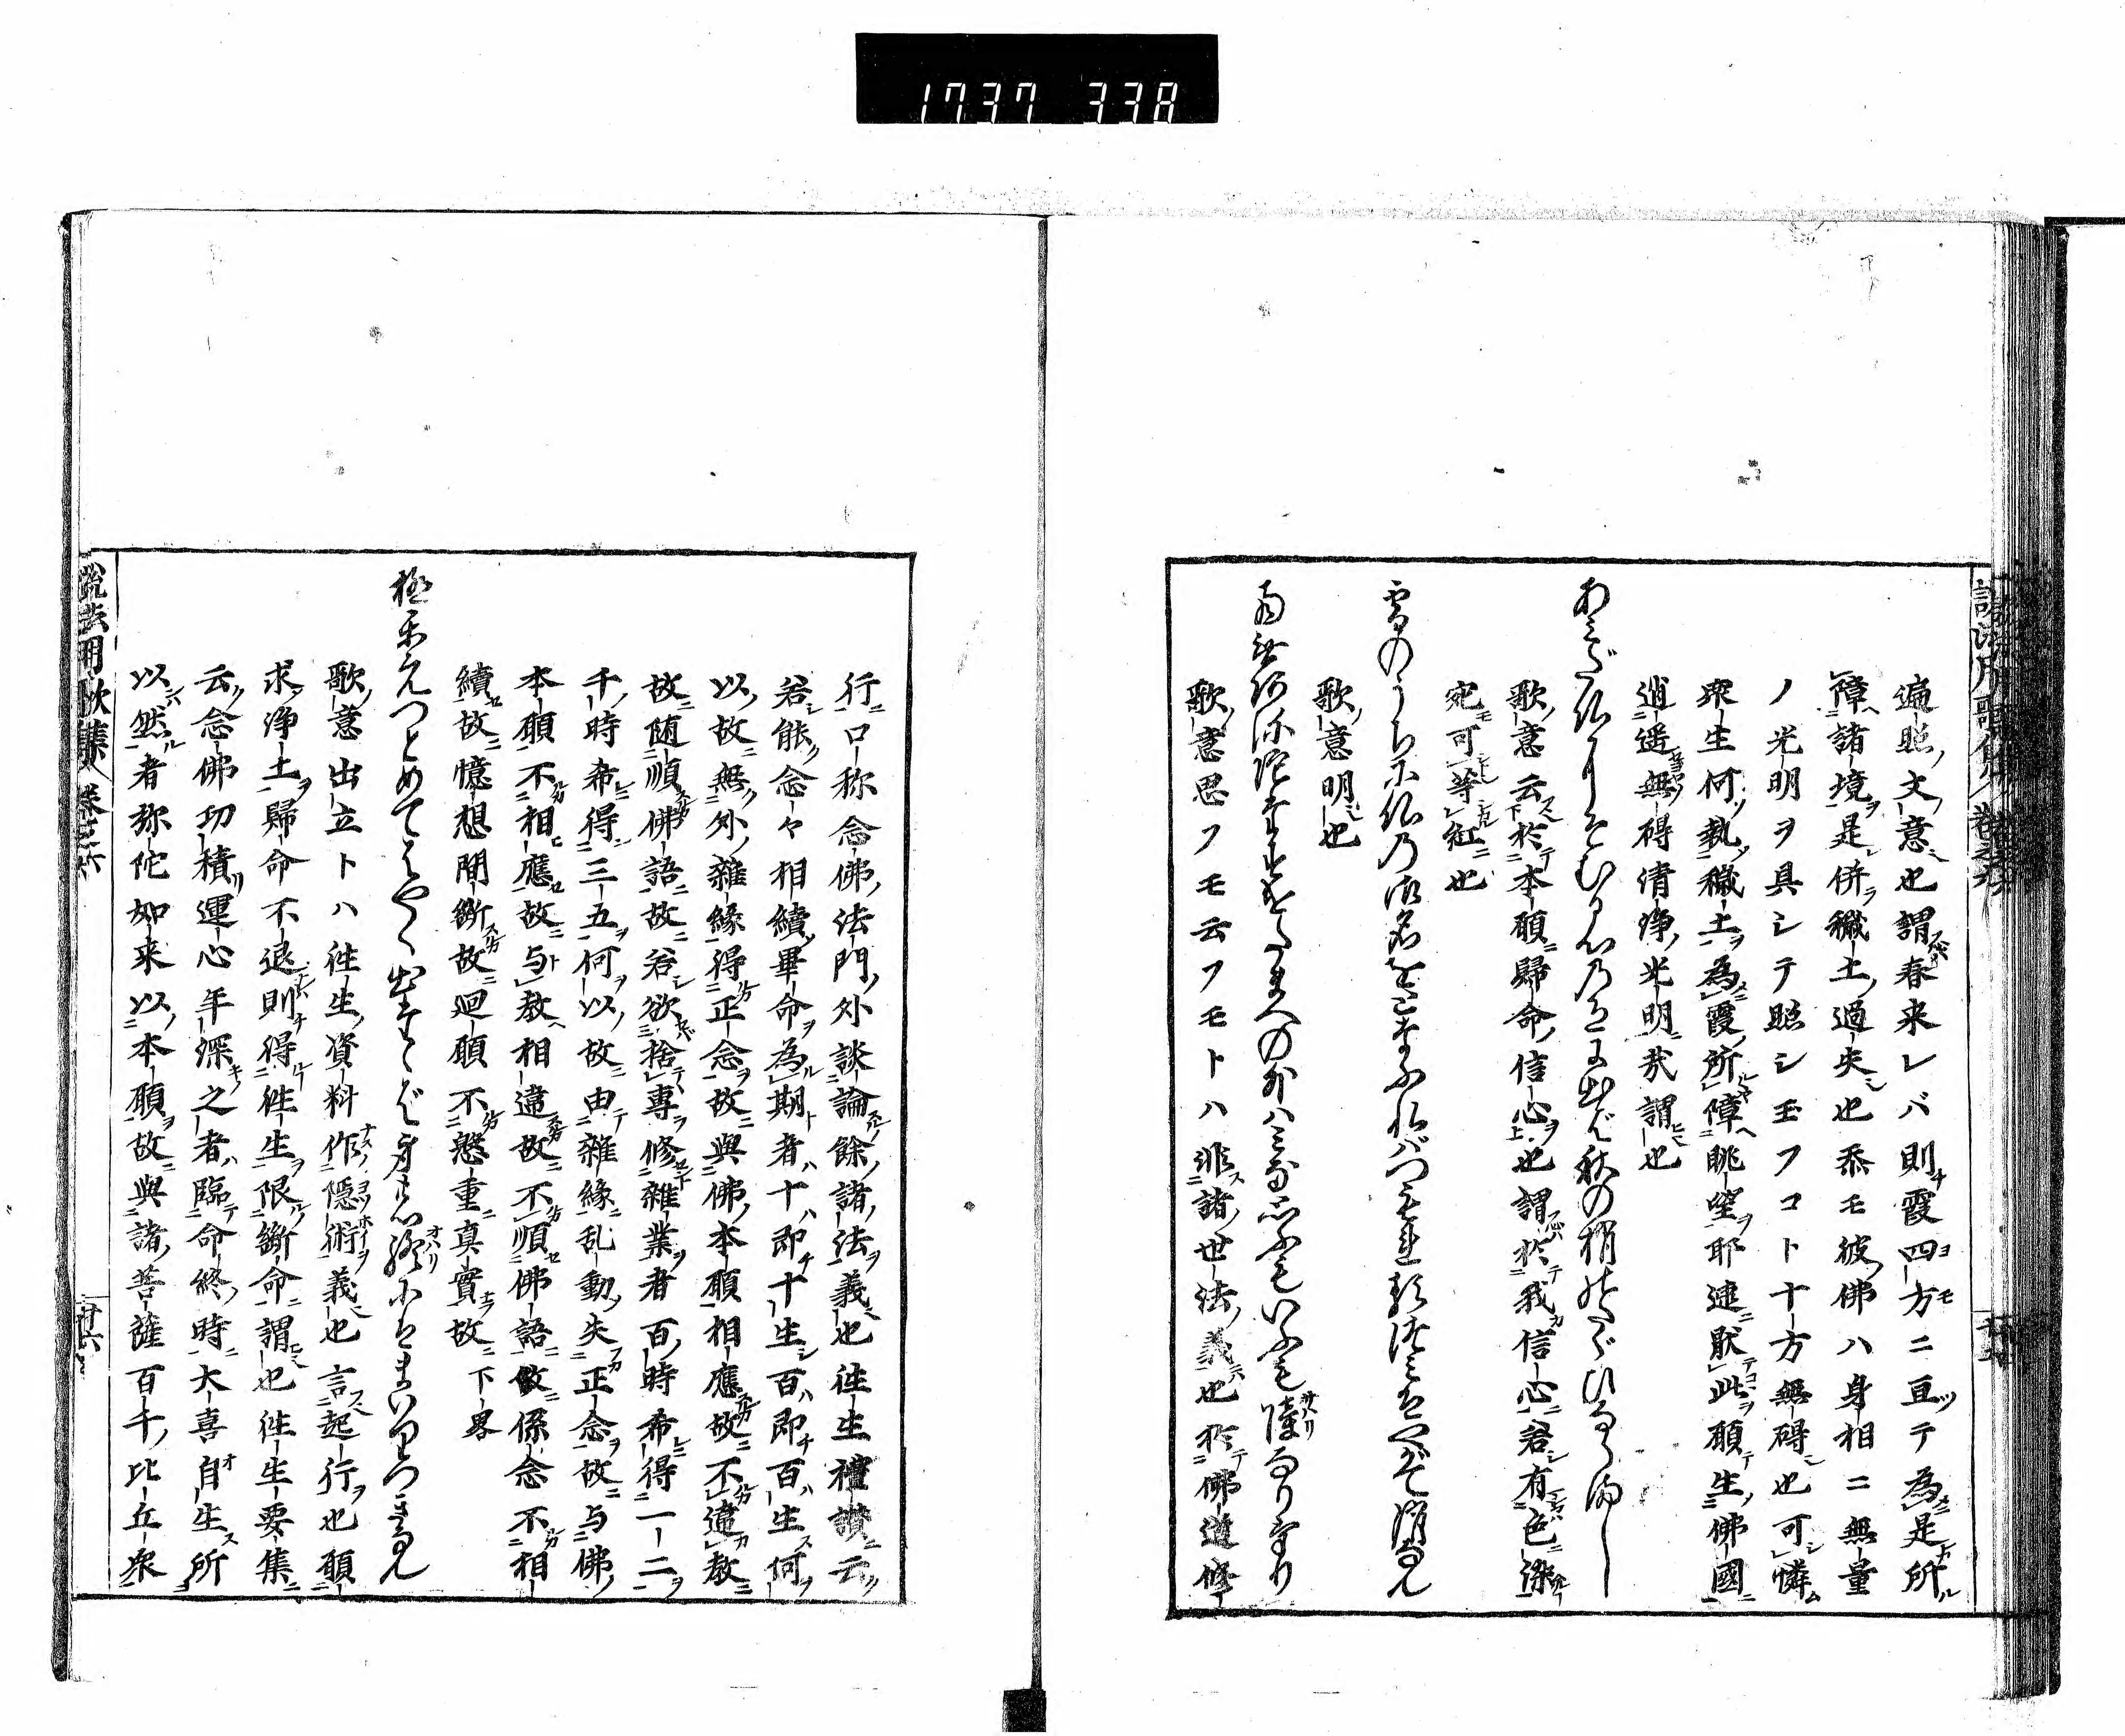 1737 338
遍照文意也謂春来レバ則霞四方ニ亘テ為是所
障諸境是併穢土過失也忝モ彼佛ハ身相ニ無量
ノ光明ヲ具シテ照シ玉フコト十方無碍也可憐
衆生何執穢土為霞所障眺望耶速猒此願生佛國
逍遥無碍清浄光明哉謂也
あみだ仏にそむる心の色に出ば秋の梢のたぐひならまし
歌意云於本願歸命信心也謂於我信心若有色染
宛可等紅也
雪のうちに仏の御名を唱ふればつもれる罪ぞやがて消ぬる
歌意明也
南無阿弥陀仏
歌意思フモ云フモトハ非諸世法義也於佛道修
行口称念佛法門外談論餘諸法義也徃生禮讃云
若能念々相續畢命為期者十即十生百即百生何
以故無外雜緣得正念故與佛本願相應故不違教
故随順佛語故若欲捨專修雜業者百時希得一二
千時希得三五何以故由雜緣乱動失正念故与佛
本願不相應故与教相違故不順佛語故係念不相
續故憶想間斷故廻願不慇重真實故下畧
極楽へつとめてはやく出たゝば身の終にはまいりつきなん
歌意出立トハ徃生資料作隱術義也言起行也願
求浄土歸命不退則得徃生限斷命謂也徃生要集
云念佛功積運心年深之者臨命終時大喜自生所
以然者弥陀如来以本願故與諸菩薩百千比丘衆
説法用歌集 巻之六 廿六